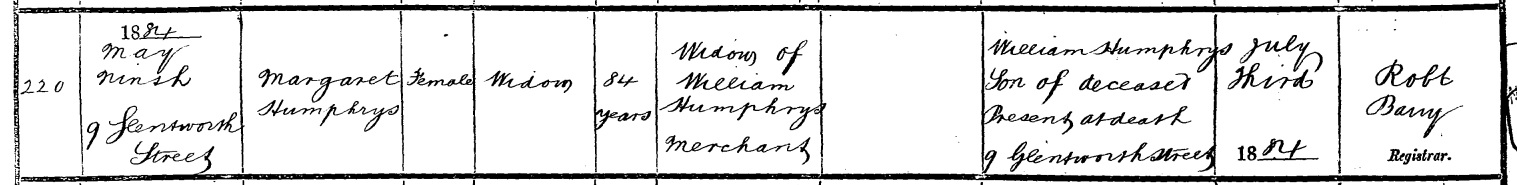 220
1884
May
Ninth
9 Glentworth
Street
Margaret
Humphrys
Female
Widow
84
years
Widow of
William
Humphrys
Merchant
William Humphrys
Son of deceased
Present at death
9 Glentworth Street
July
Third
1884
Robt
Barry
Registrar.